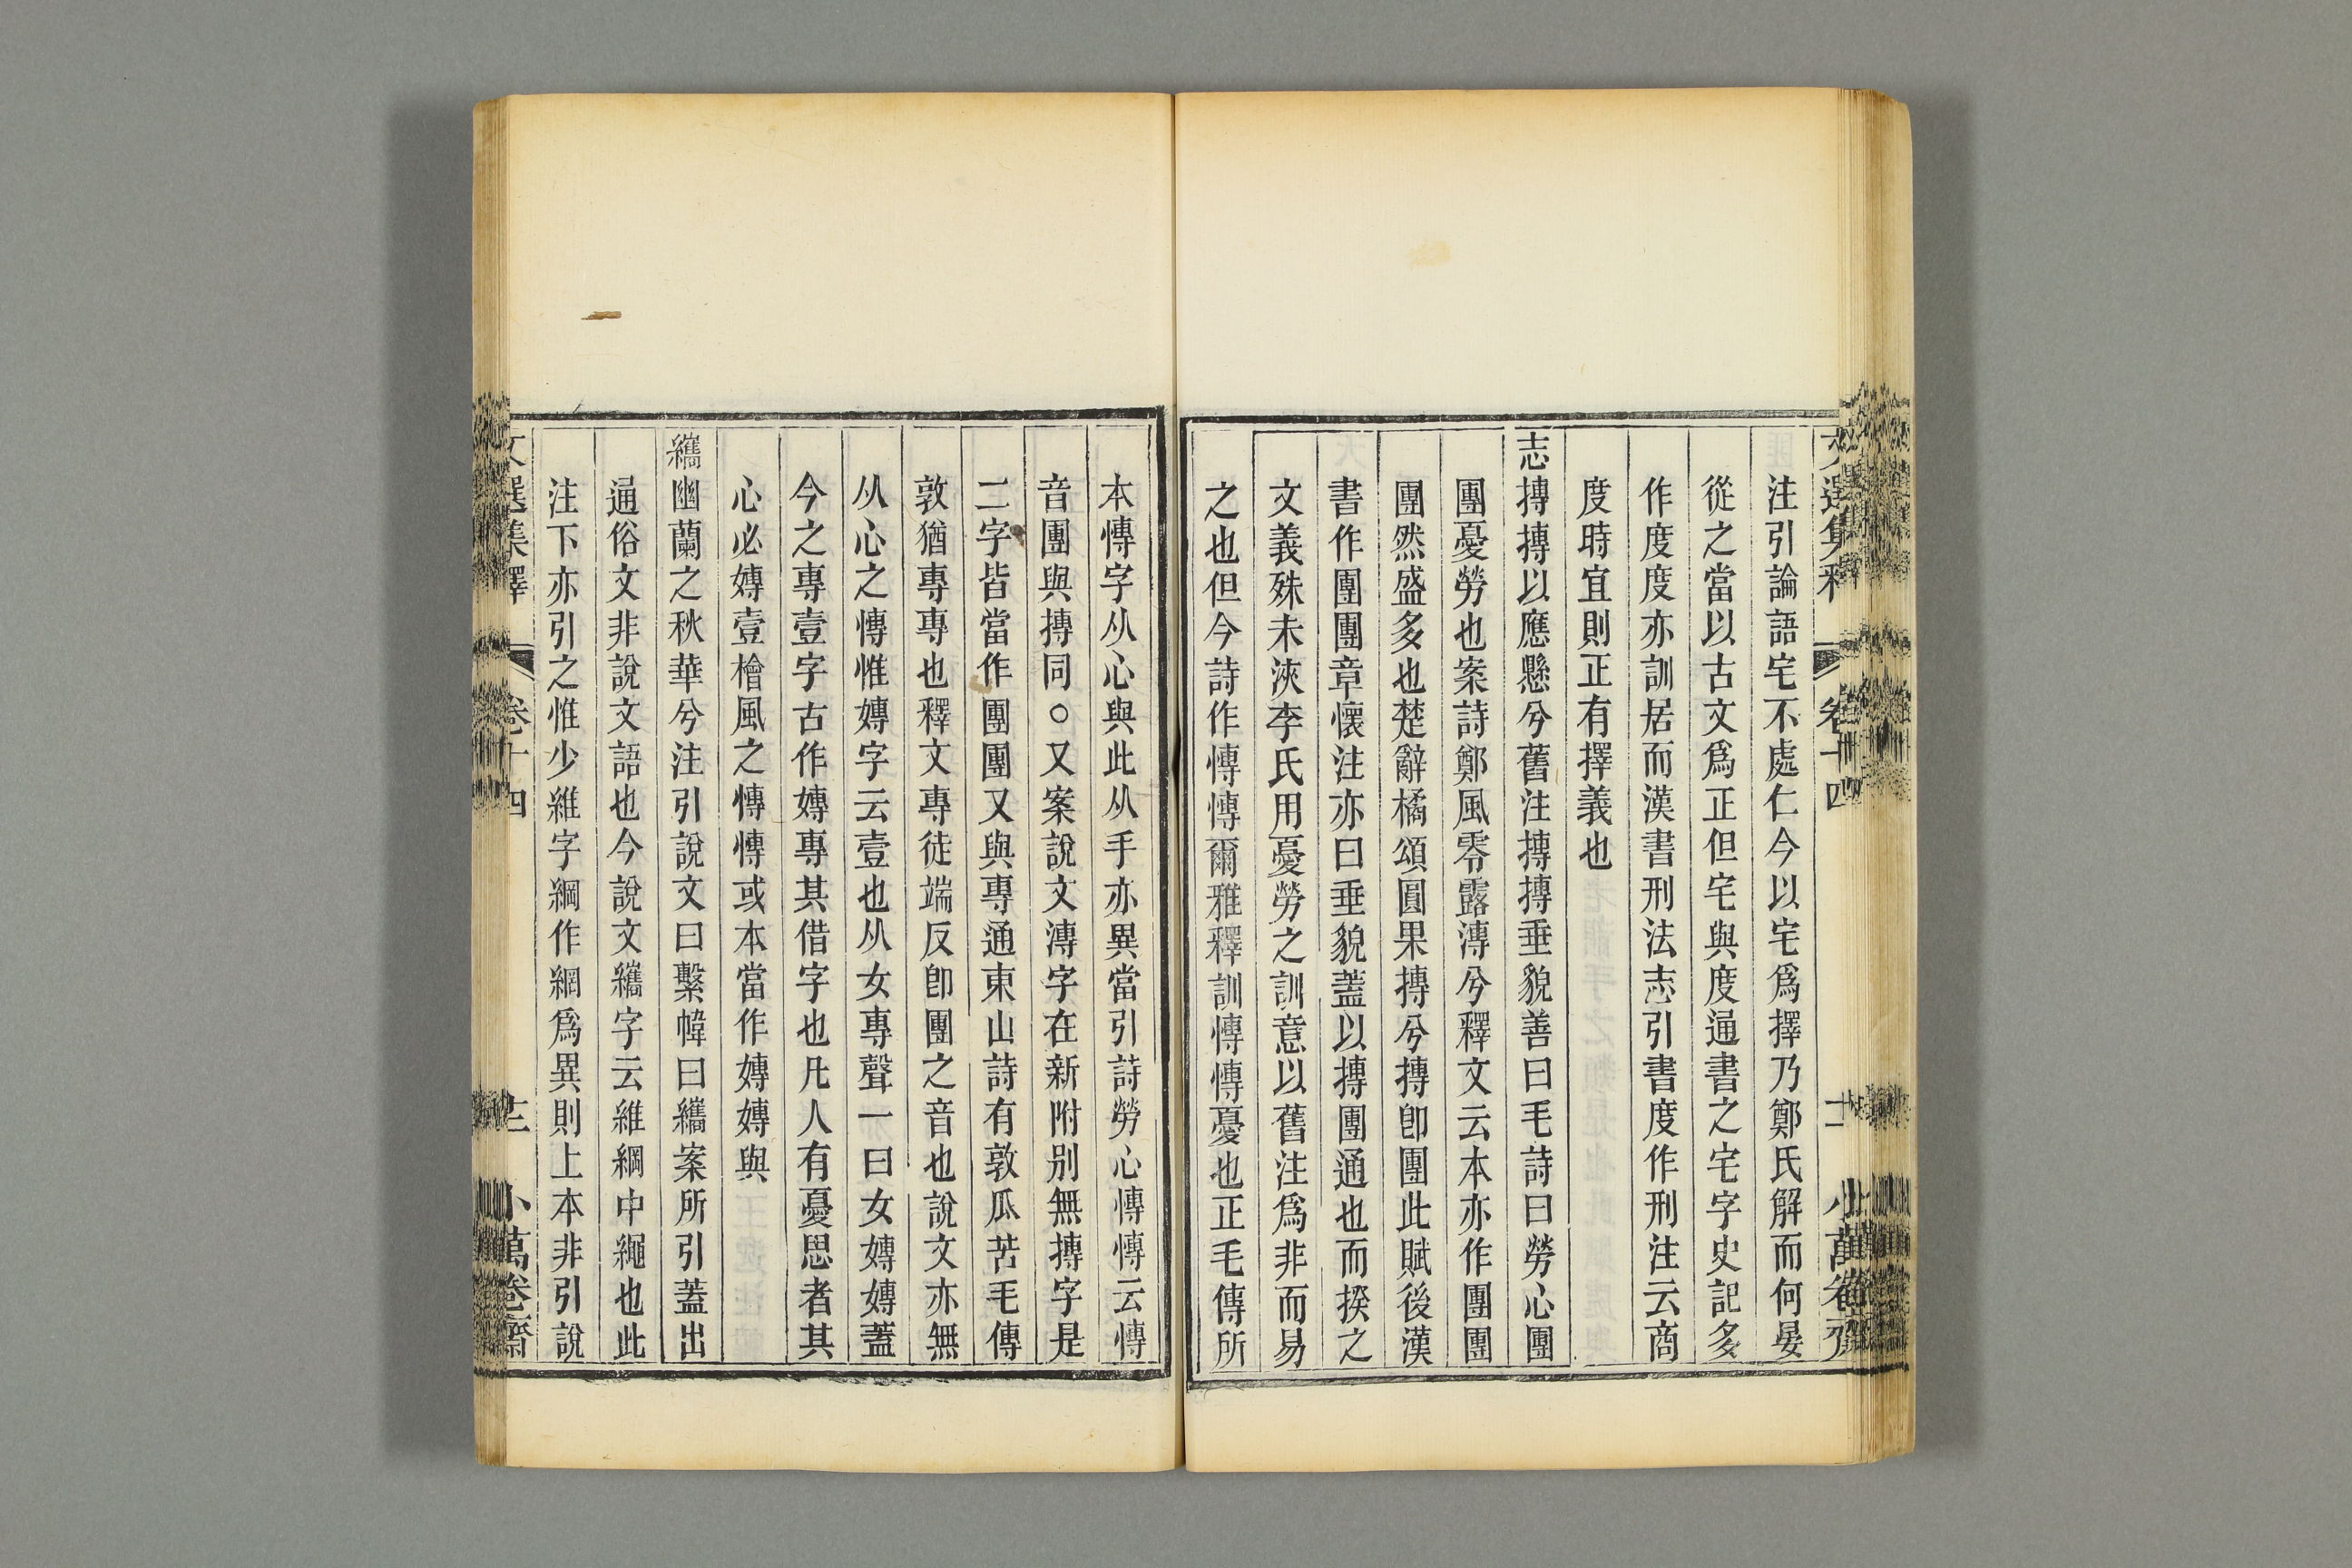 文選集釋 卷十四 十二 小萬卷齋
注引論語宅不處仁今以宅爲擇乃鄭氏解而何晏
從之當以古文爲正但宅與度通書之宅字史記多
作度度亦訓居而漢書刑法志引書度作刑注云商
度時宜則正有擇義也
志摶摶以應懸兮舊注摶摶垂貌善曰毛詩曰勞心團
團憂勞也案詩鄭風零露漙兮釋文云本亦作團團
團然盛多也楚辭橘頌圓果摶兮摶卽團此賦後漢
書作團團章懷注亦曰垂貌蓋以摶團通也而揆之
文義殊未浹李氏用憂勞之訓意以舊注爲非而易
之也但今詩作慱慱爾雅釋訓慱慱憂也正毛傳所
本慱字从心與此从手亦異當引詩勞心慱慱云慱
音團與摶同○又案說文漙字在新附別無摶字是
二字皆當作團團又與專通東山詩有敦瓜苦毛傳
敦猶專專也釋文專徒端反卽團之音也說文亦無
从心之慱惟嫥字云壹也从女專聲一曰女嫥嫥蓋
今之專壹字古作嫥專其借字也凡人有憂思者其
心必嫥壹檜風之慱慱或本當作嫥嫥與
纗幽蘭之秋華兮注引說文曰繫幃曰纗案所引蓋出
通俗文非說文語也今說文纗字云維綱中繩也此
注下亦引之惟少維字綱作網爲異則上本非引說
文選集釋 卷十四 十三 小萬卷齋